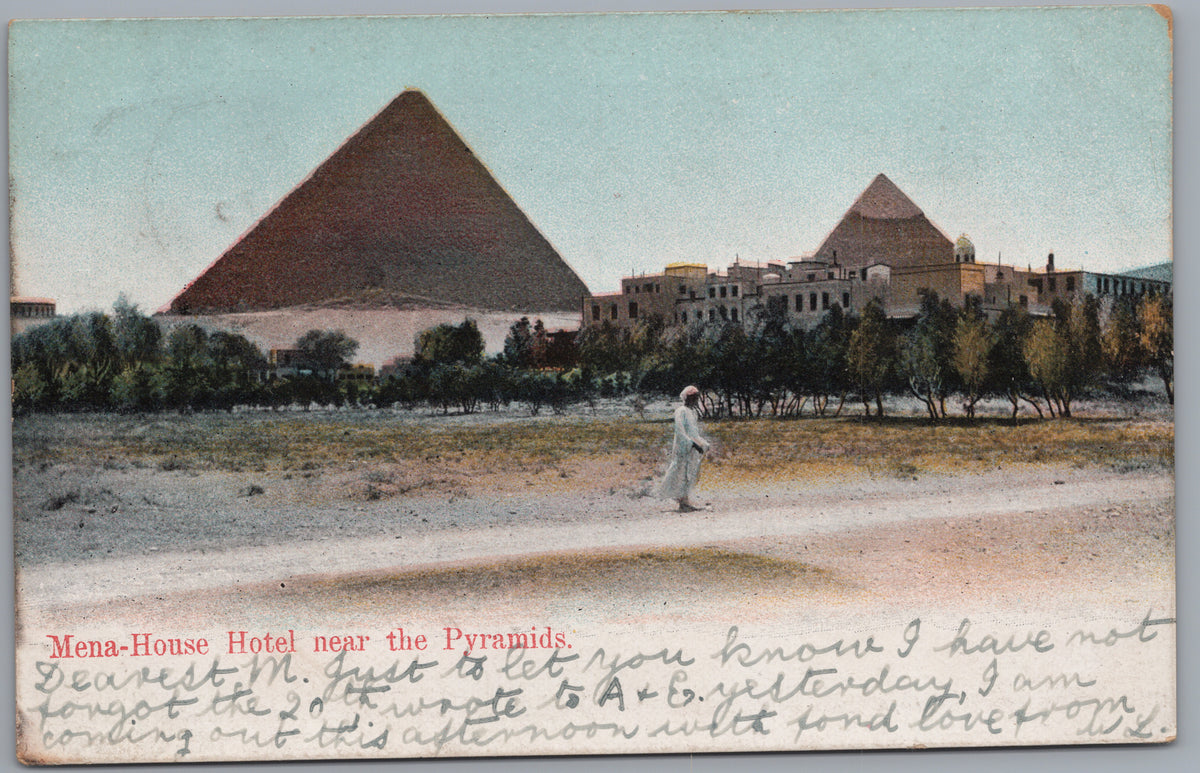 Mena-House Hotel near the Pyramids.
Dearest M. Just to let you know I have not
forgot the 20th wrote to A + E. yesterday, I am
coming out this afternoon with fond love from
W L.